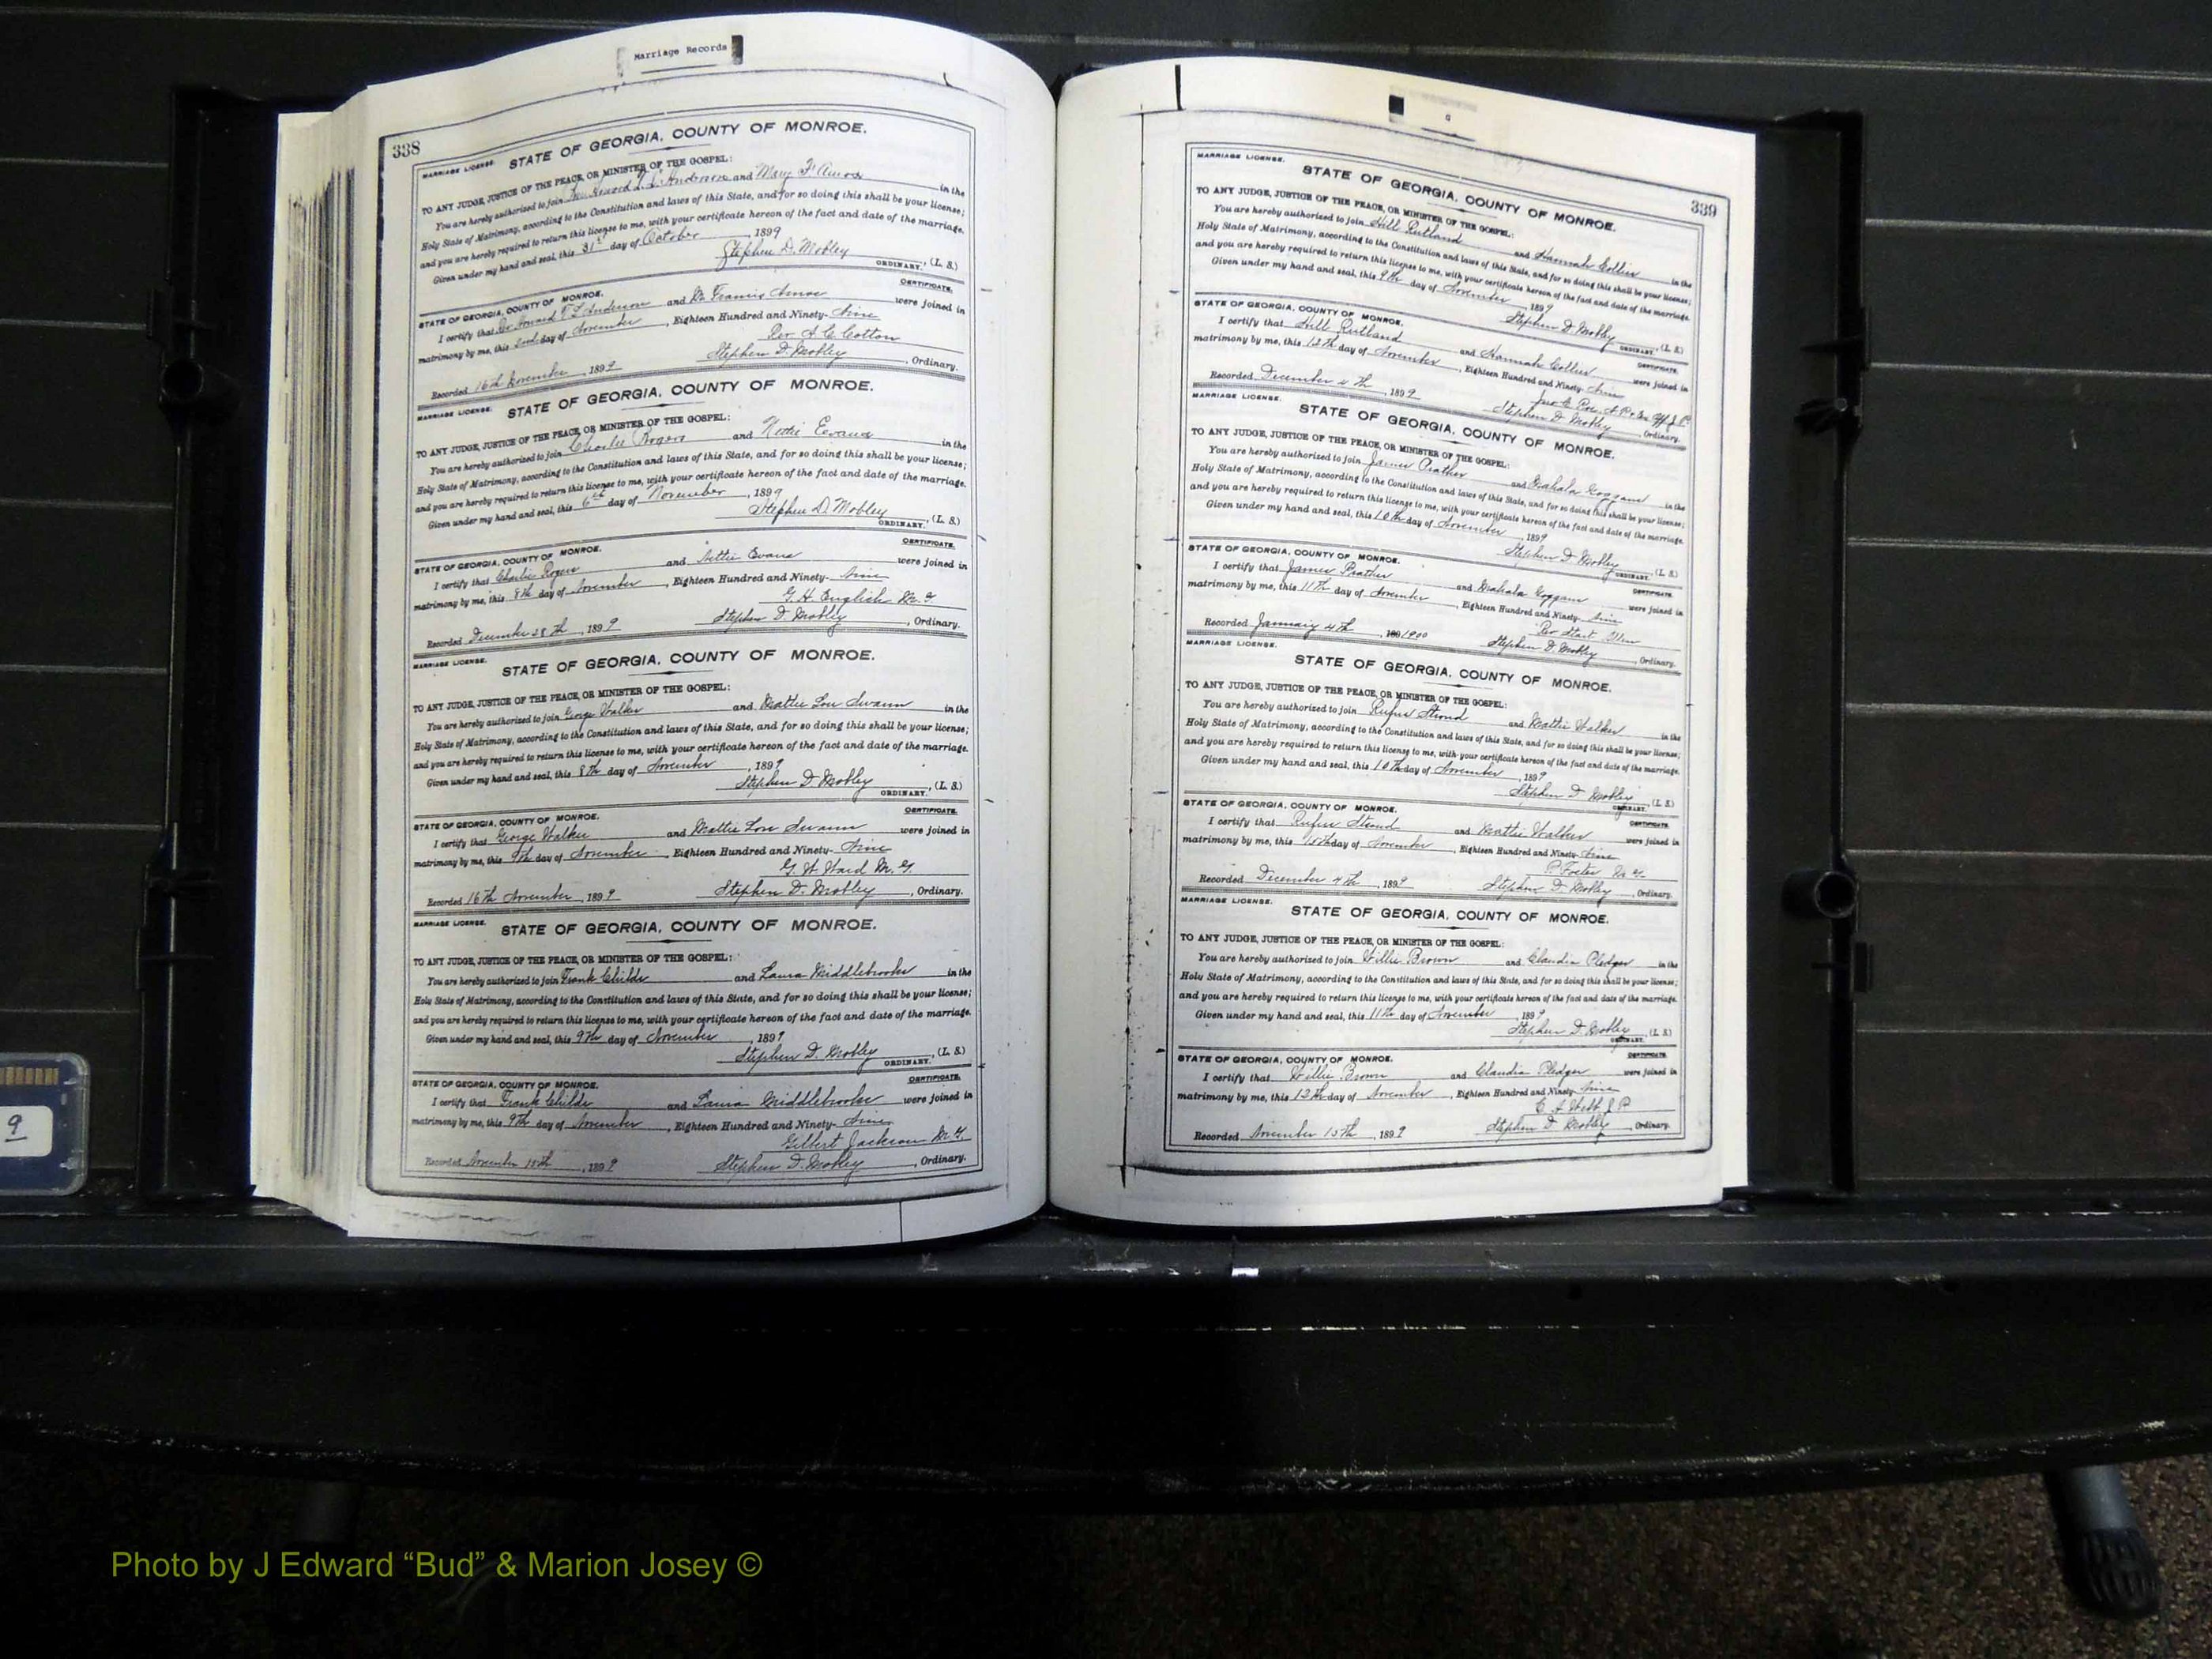 Marriage Records
338
MARRIAGE LICENSE. STATE OF GEORGIA, COUNTY OF MONROE.
TO ANY JUDGE, JUSTICE OF THE PEACE, OR MINISTER OF THE GOSPEL:
You are hereby authorized to join Howard Anderson and Mary F Amos in the
Holy State of Matrimony, according to the Constitution and laws of this State, and for so doing this shall be your license;
and you are hereby required to return this license to me, with your certificate hereon of the fact and date of the marriage.
Given under my hand and seal, this 31st day of October, 1899
Stephen D. Mobley, (L. S.)
ORDINARY.
CERTIFICATE.
STATE OF GEORGIA, COUNTY OF MONROE.
I certify that Howard T L Anderson and Francis Amos were joined in
matrimony by me, this 2nd day of November, Eighteen Hundred and Ninety-Nine
Rev A. C. Cotton
Recorded 16th November, 1899 Stephen D. Mobley, Ordinary.
MARRIAGE LICENSE. STATE OF GEORGIA, COUNTY OF MONROE.
TO ANY JUDGE, JUSTICE OF THE PEACE, OR MINISTER OF THE GOSPEL:
You are hereby authorized to join Charlie Rogers and Nettie Evans in the
Holy State of Matrimony, according to the Constitution and laws of this State, and for so doing this shall be your license;
and you are hereby required to return this license to me, with your certificate hereon of the fact and date of the marriage.
Given under my hand and seal, this 6th day of November, 1899
Stephen D. Mobley, (L. S.)
ORDINARY.
CERTIFICATE.
STATE OF GEORGIA, COUNTY OF MONROE.
I certify that Charlie Rogers and Nettie Evans were joined in
matrimony by me, this 8th day of November, Eighteen Hundred and Ninety-Nine
G. H. English M. G.
Recorded December 28th, 1899 Stephen D. Mobley, Ordinary.
MARRIAGE LICENSE. STATE OF GEORGIA, COUNTY OF MONROE.
TO ANY JUDGE, JUSTICE OF THE PEACE, OR MINISTER OF THE GOSPEL:
You are hereby authorized to join George Walker and Mattie Lou Swann in the
Holy State of Matrimony, according to the Constitution and laws of this State, and for so doing this shall be your license;
and you are hereby required to return this license to me, with your certificate hereon of the fact and date of the marriage.
Given under my hand and seal, this 8th day of November, 1899
Stephen D Mobley, (L. S.)
ORDINARY.
CERTIFICATE.
STATE OF GEORGIA, COUNTY OF MONROE.
I certify that George Walker and Mattie Lou Swann were joined in
matrimony by me, this 9th day of November, Eighteen Hundred and Ninety-Nine
G. W. Ward M. G.
Recorded 16th November, 1899 Stephen D. Mobley, Ordinary.
MARRIAGE LICENSE. STATE OF GEORGIA, COUNTY OF MONROE.
TO ANY JUDGE, JUSTICE OF THE PEACE, OR MINISTER OF THE GOSPEL:
You are hereby authorized to join Frank Childs and Laura Middlebrooks in the
Holy State of Matrimony, according to the Constitution and laws of this State, and for so doing this shall be your license;
and you are hereby required to return this license to me, with your certificate hereon of the fact and date of the marriage.
Given under my hand and seal, this 9th day of November, 1899
Stephen D. Mobley, (L. S.)
ORDINARY.
CERTIFICATE.
STATE OF GEORGIA, COUNTY OF MONROE.
I certify that Frank Childs and Laura Middlebrooks were joined in
matrimony by me, this 9th day of November, Eighteen Hundred and Ninety-Nine
Gilbert Jackson M. G.
Recorded November, 1899 Stephen D. Mobley, Ordinary.
339
MARRIAGE LICENSE.
STATE OF GEORGIA, COUNTY OF MONROE.
TO ANY JUDGE, JUSTICE OF THE PEACE, OR MINISTER OF THE GOSPEL:
You are hereby authorized to join Hill Rutland and Hannah Collier in the
Holy State of Matrimony, according to the Constitution and laws of this State, and for so doing this shall be your license;
and you are hereby required to return this license to me, with your certificate hereon of the fact and date of the marriage.
Given under my hand and seal, this 9th day of November, 1899
Stephen D. Mobley, (L. S.)
ORDINARY.
CERTIFICATE.
STATE OF GEORGIA, COUNTY OF MONROE.
I certify that Hill Rutland and Hannah Collier were joined in
matrimony by me, this 12th day of November, Eighteen Hundred and Ninety-Nine
Recorded December 4th, 1899 Stephen D Mobley, Ordinary.
MARRIAGE LICENSE.
STATE OF GEORGIA, COUNTY OF MONROE.
TO ANY JUDGE, JUSTICE OF THE PEACE, OR MINISTER OF THE GOSPEL:
You are hereby authorized to join James Prather and Mahala Goggans in the
Holy State of Matrimony, according to the Constitution and laws of this State, and for so doing this shall be your license;
and you are hereby required to return this license to me, with your certificate hereon of the fact and date of the marriage.
Given under my hand and seal, this 10th day of November, 1899
Stephen D. Mobley, (L. S.)
ORDINARY.
CERTIFICATE.
STATE OF GEORGIA, COUNTY OF MONROE.
I certify that James Prather and Mahala Goggans were joined in
matrimony by me, this 11th day of November, Eighteen Hundred and Ninety-Nine
Rev
Recorded January 4th, 1900 Stephen D. Mobley, Ordinary.
MARRIAGE LICENSE.
STATE OF GEORGIA, COUNTY OF MONROE.
TO ANY JUDGE, JUSTICE OF THE PEACE, OR MINISTER OF THE GOSPEL:
You are hereby authorized to join Rufus Stroud and Mattie Walker in the
Holy State of Matrimony, according to the Constitution and laws of this State, and for so doing this shall be your license;
and you are hereby required to return this license to me, with your certificate hereon of the fact and date of the marriage.
Given under my hand and seal, this 10th day of November, 1899
Stephen D Mobley, (L. S.)
ORDINARY.
CERTIFICATE.
STATE OF GEORGIA, COUNTY OF MONROE.
I certify that Rufus Stroud and Mattie Walker were joined in
matrimony by me, this day of November, Eighteen Hundred and Ninety-Nine
P. Foster M. G.
Recorded December 4th, 1899 Stephen D. Mobley, Ordinary.
MARRIAGE LICENSE.
STATE OF GEORGIA, COUNTY OF MONROE.
TO ANY JUDGE, JUSTICE OF THE PEACE, OR MINISTER OF THE GOSPEL:
You are hereby authorized to join Willie Brown and Claudia Pledger in the
Holy State of Matrimony, according to the Constitution and laws of this State, and for so doing this shall be your license;
and you are hereby required to return this license to me, with your certificate hereon of the fact and date of the marriage.
Given under my hand and seal, this 11th day of November, 1899
Stephen D. Mobley, (L. S.)
ORDINARY.
CERTIFICATE.
STATE OF GEORGIA, COUNTY OF MONROE.
I certify that Willie Brown and Claudia Pledger were joined in
matrimony by me, this 12th day of November, Eighteen Hundred and Ninety-Nine
J. P.
Recorded November 15th, 1899 Stephen D Mobley, Ordinary.
9
Photo by J Edward “Bud” & Marion Josey ©